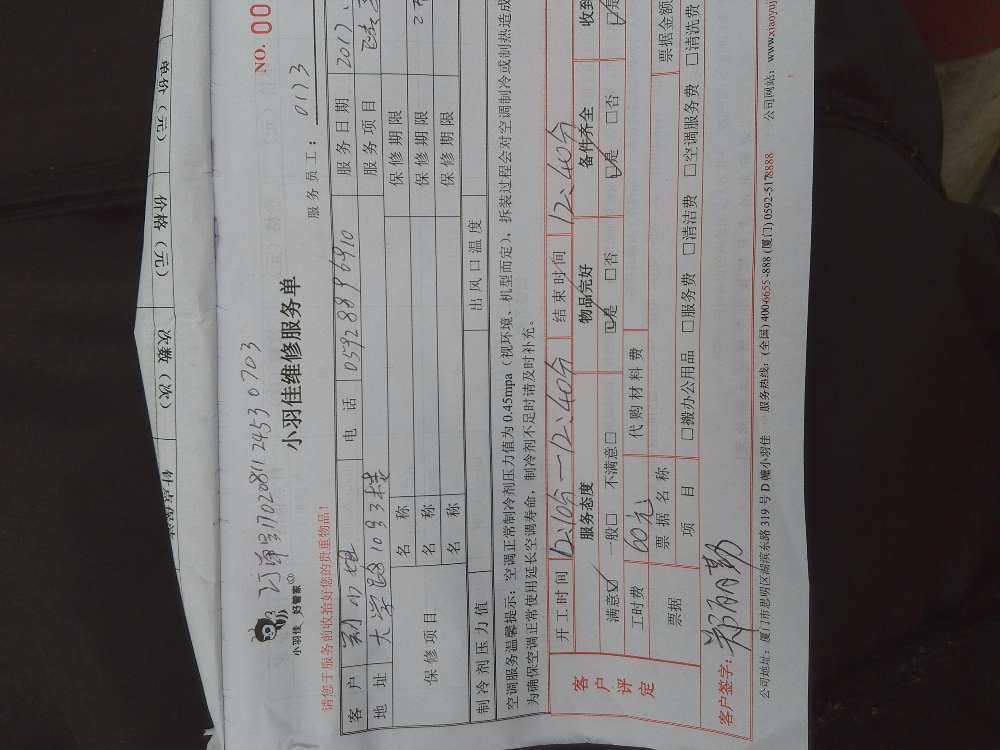 单价（元） 价格（元） 次数（次）
订单号170208112453 0703
小羽佳 好管家
小羽佳维修服务单
NO. 00
服务员工： 01173
请您于服务前收拾好您的贵重物品！
客 户 电 话 05928896910 服务日期 2017.
地 址 大学路1093楼 服务项目
保修项目
名 称 保修期限
名 称 保修期限
名 称 保修期限
制冷剂压力值 出风口温度
空调服务温馨提示：空调正常制冷剂压力值为 0.45mpa（视环境、机型而定），拆装过程会对空调制冷或制热造成
为确保空调正常使用延长空调寿命，制冷剂不足时请及时补充。
客户评定
开工时间 12:10分—12:40分 结束时间 12:40分
服务态度 物品完好 备件齐全 收到
满意☑ 一般□ 不满意□ ☑是 □否 ☑是 □否 ☑是
工时费 60元 代购材料费
票据 票据名称 票据金额
项 目 □搬办公用品 □服务费 □清洁费 □空调服务费 □清洗费
客户签字： 郑丽勤
公司地址：厦门市思明区湖滨东路 319 号 D 幢小羽佳 服务热线：(全国) 400-6655-888 (厦门) 0592-5178888 公司网站：www.xiaoyuj